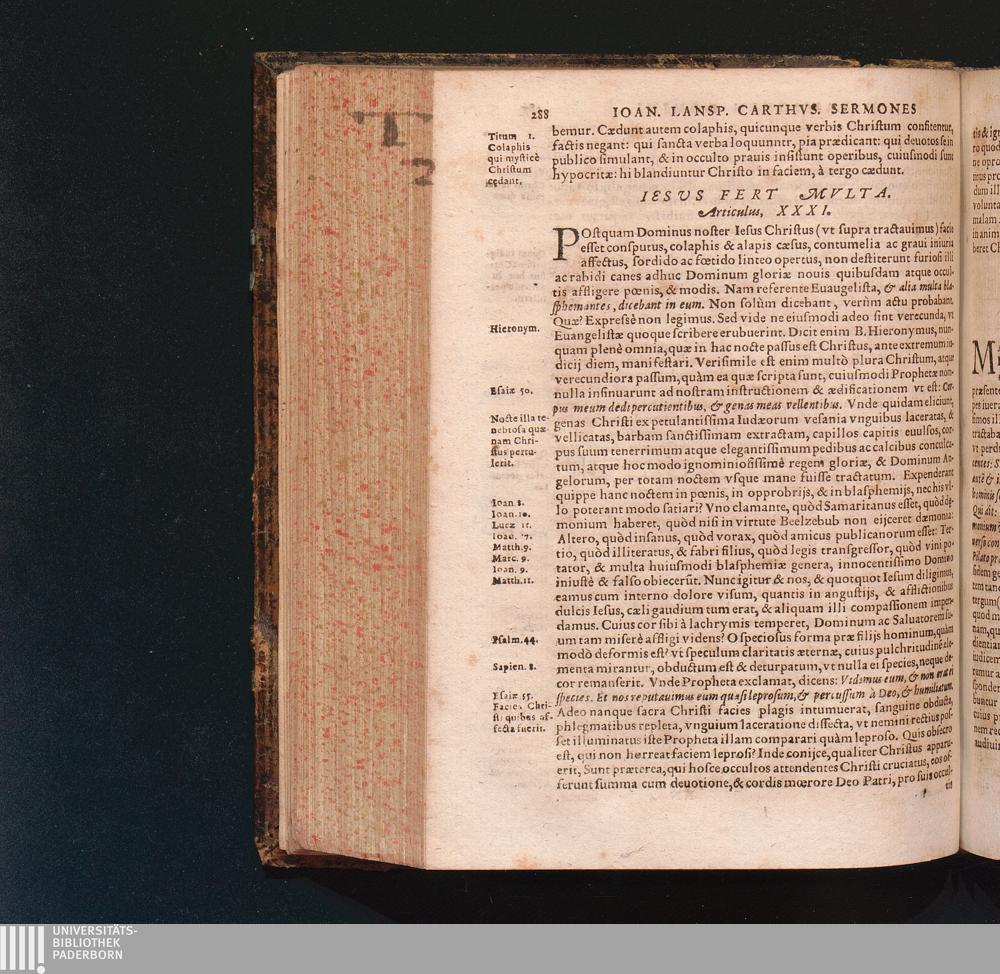 288 IOAN. LANSP. CARTHVS. SERMONES
bemur. Cædunt autem colaphis, quicunque verbis Christum confitentur,
factis negant: qui sancta verba loquunnr, pia prædicant: qui deuotos se in
publico simulant, & in occulto prauis insistunt operibus, cuiusmodi sunt
hypocritæ: hi blandiuntur Christo in faciem, à tergo cædunt.
Titum 1.
Colaphis
qui mysticè
Christum
cędant.
IESVS FERT MVLTA.
Articulus, XXXI.
POstquam Dominus noster Iesus Christus (vt supra tractauimus) facie
esset consputus, colaphis & alapis cæsus, contumelia ac graui iniuria
affectus, sordido ac fœtido linteo opertus, non destiterunt furiosi illi
ac rabidi canes adhuc Dominum gloriæ nouis quibusdam atque occul-
tis affligere pœnis, & modis. Nam referente Euaugelista, & alia multa bla-
sphemantes, dicebant in eum. Non solùm dicebant, verùm actu probabant.
Quæ? Expressè non legimus. Sed vide ne eiusmodi adeo sint verecunda, vt
Euangelistæ quoque scribere erubuerint. Dicit enim B. Hieronymus, nun-
quam plenè omnia, quæ in hac nocte passus est Christus, ante extremum iu-
dicij diem, manifestari. Verisimile est enim multò plura Christum, atque
verecundiora passum, quàm ea quæ scripta sunt, cuiusmodi Prophetæ non-
nulla insinuarunt ad nostram instructionem & ædificationem vt est: Cor-
pus meum dedi percutientibus, & genas meas vellentibus. Vnde quidam eliciunt,
genas Christi ex petulantissima Iudæorum vesania vnguibus laceratas, &
vellicatas, barbam sanctissimam extractam, capillos capitis euulsos, cor-
pus suum tenerrimum atque elegantissimum pedibus ac calcibus conculca-
tum, atque hoc modo ignominiosissimè regem gloriæ, & Dominum An-
gelorum, per totam noctem vsque mane fuisse tractatum. Expenderant
quippe hanc noctem in pœnis, in opprobrijs, & in blasphemijs, nec his vl-
lo poterant modo satiari? Vno clamante, quòd Samaritanus esset, quòd dę-
monium haberet, quòd nisi in virtute Beelzebub non eijceret dæmonia:
Altero, quòd insanus, quòd vorax, quòd amicus publicanorum esset: Ter-
tio, quòd illiteratus, & fabri filius, quòd legis transgressor, quòd vini po-
tator, & multa huiusmodi blasphemiæ genera, innocentissimo Domino
iniustè & falso obiecerūt. Nunc igitur & nos, & quotquot Iesum diligimus,
eamus cum interno dolore visum, quantis in angustijs, & afflictionibus
dulcis Iesus, cæli gaudium tum erat, & aliquam illi compassionem impen-
damus. Cuius cor sibi à lachrymis temperet, Dominum ac Saluatorem su-
um tam miserè affligi videns? O speciosus forma præ filijs hominum, quàm
modò deformis est? vt speculum claritatis æternæ, cuius pulchritudinē ele-
menta mirantur, obductum est & deturpatum, vt nulla ei species, neque de-
cor remanserit. Vnde Propheta exclamat, dicens: Vidimus eum, & non erat ei
species. Et nos reputauimus eum quasi leprosum, & percussum à Deo, & humiliatum.
Adeo nanque sacra Christi facies plagis intumuerat, sanguine obducta,
phlegmatibus repleta, vnguium laceratione dissecta, vt nemini rectius pos-
set illuminatus iste Propheta illam comparari quàm leproso. Quis obsecro
est, qui non horreat faciem leprosi? Inde conijce, qualiter Christus apparu-
erit, Sunt præterea, qui hosce occultos attendentes Christi cruciatus, eos of-
ferunt summa cum deuotione, & cordis mœrore Deo Patri, pro suis occul-
tis
Hieronym.
Esaiæ 50.
Nocte illa te-
nebrosa quæ-
nam Chri-
stus pertu-
lerit.
Ioan. 8.
Ioan. 10.
Lucæ 11.
Ioan. 7.
Matth. 9.
Marc. 9.
Ioan. 9.
Matth. 11.
Psalm. 44.
Sapien. 8.
Esaiæ 53.
Facies Chri-
sti quibus af-
fecta fuerit.
T
2
UNIVERSITÄTS-
BIBLIOTHEK
PADERBORN